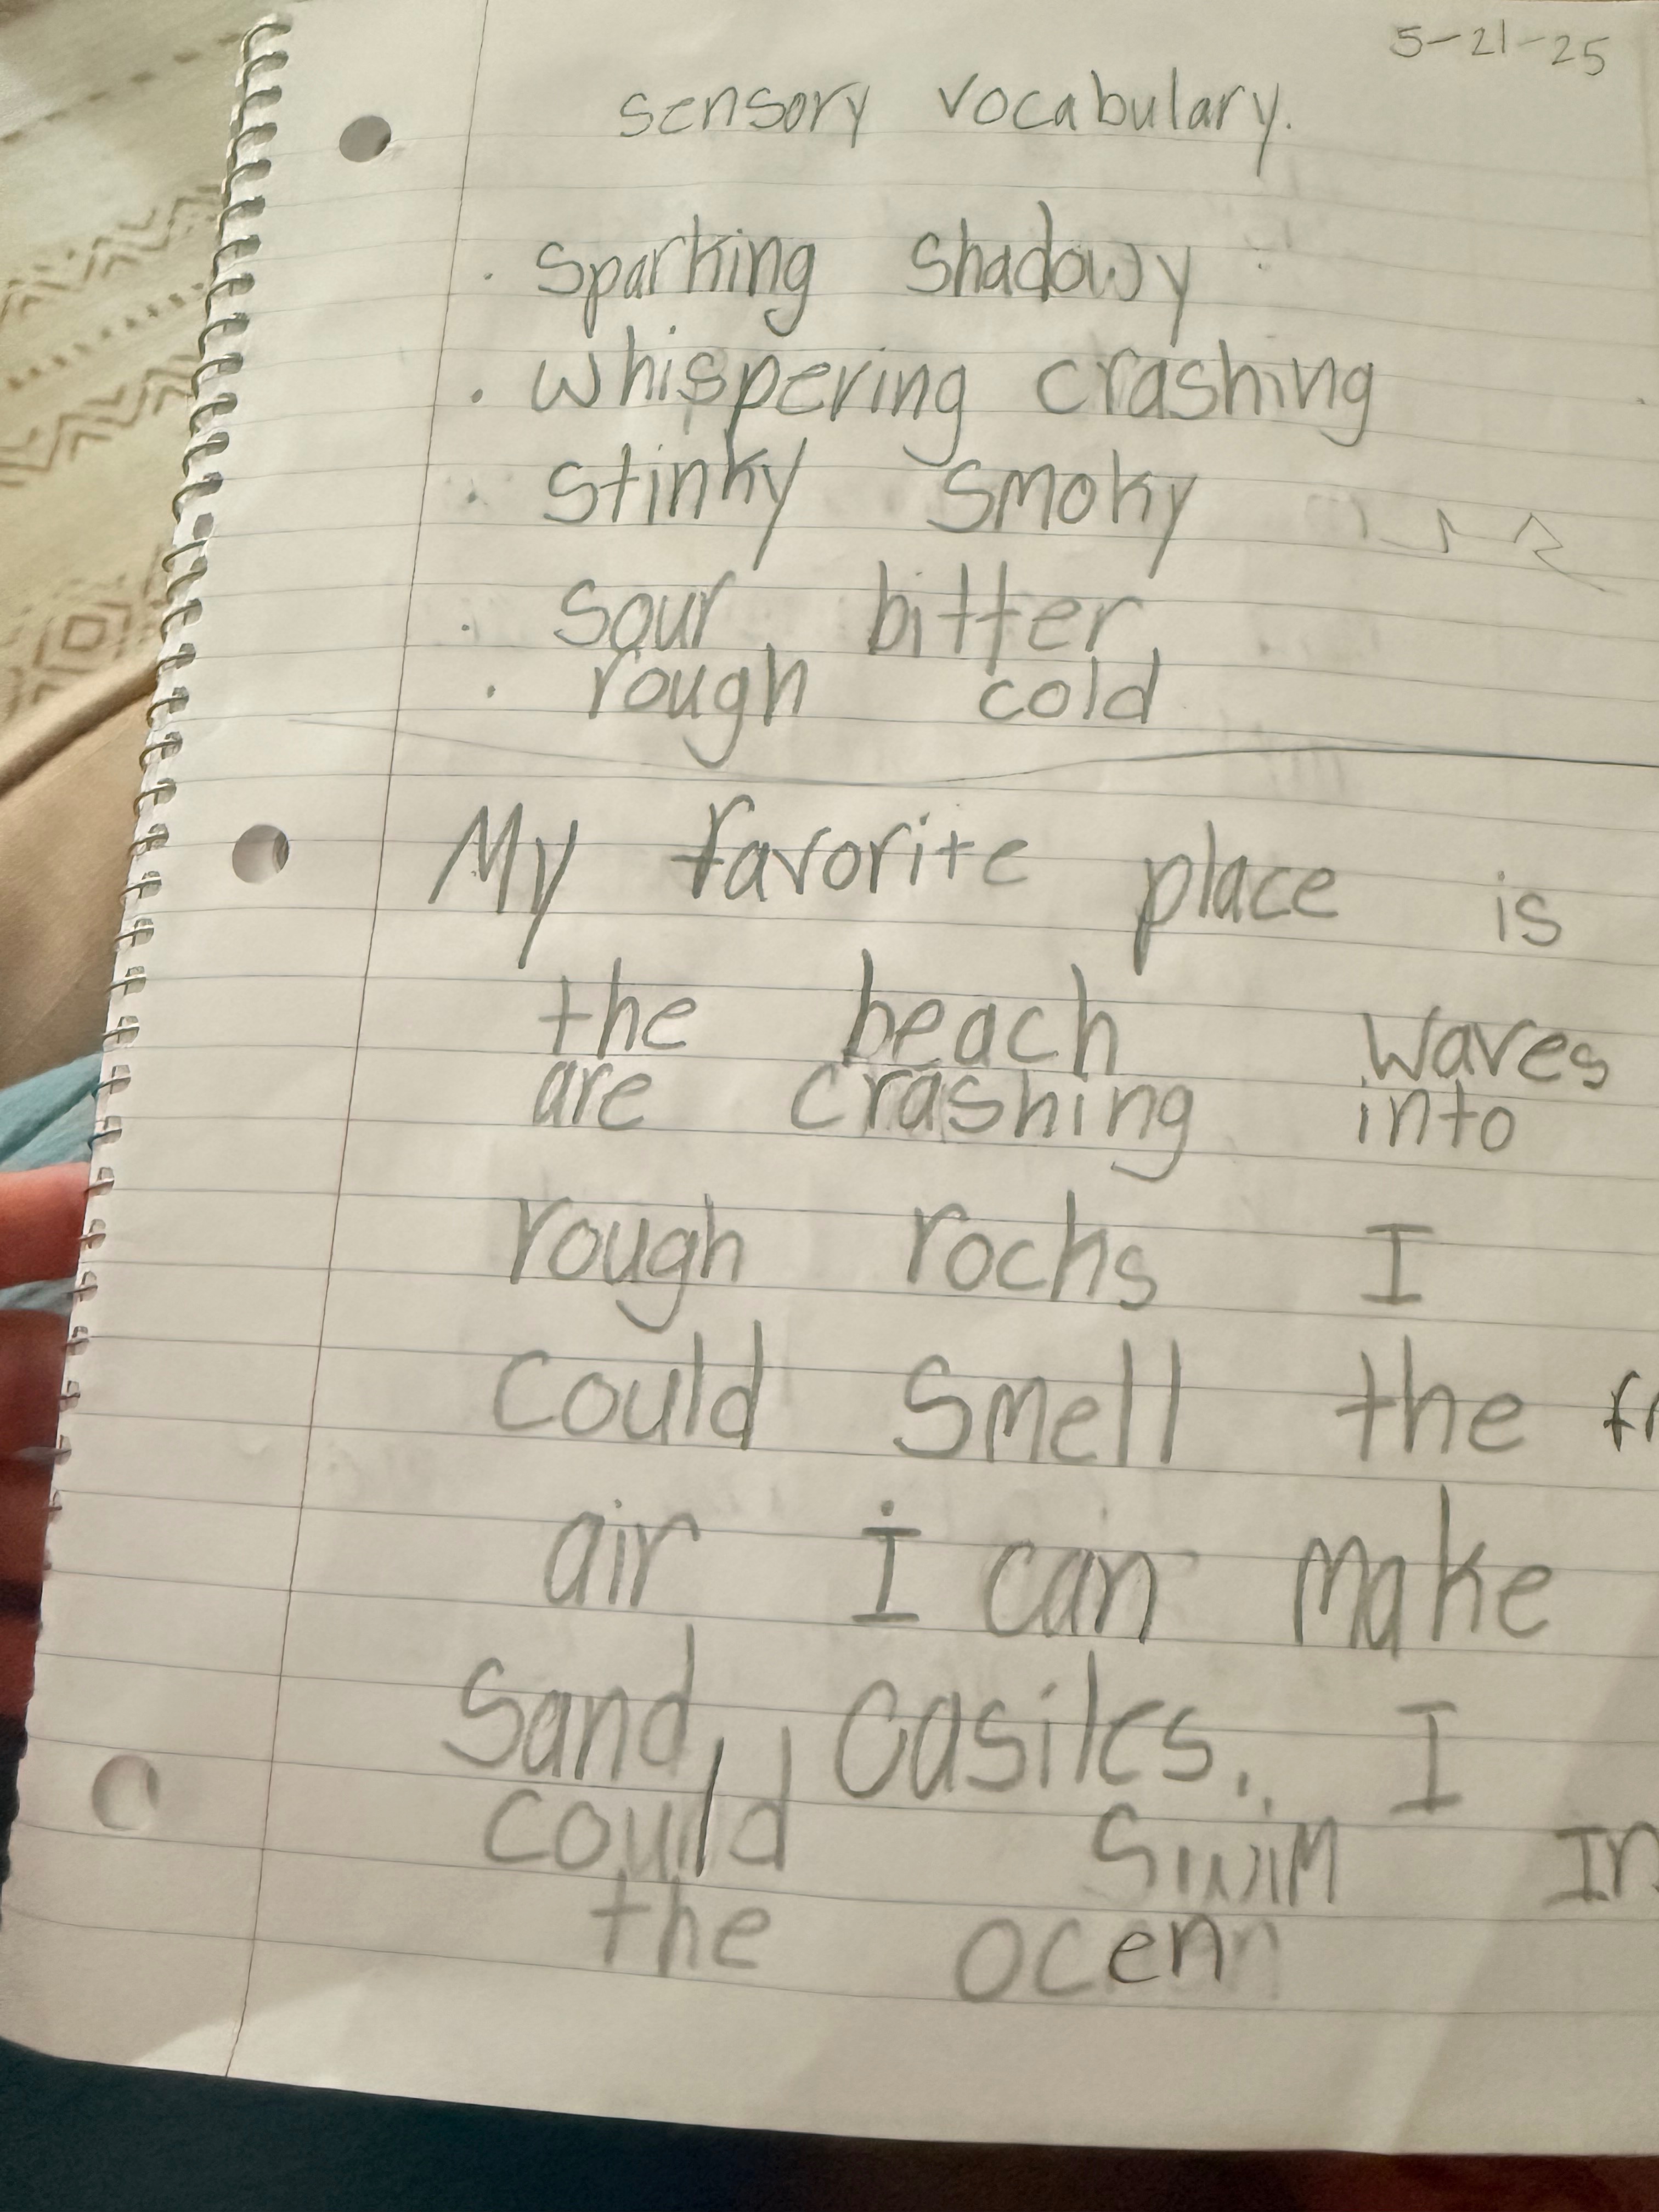 5-21-25
sensory vocabulary.
. sparking shadowy
. whispering crashing
. stinky smoky
. sour bitter
. rough cold
My favorite place is
the beach waves
are crashing into
rough rocks I
could smell the
air I can make
Sand casitles. I
could swim In
the ocenn